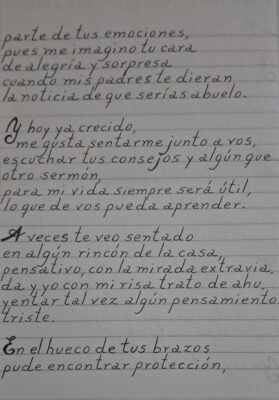 parte de tus emociones,
pues me imagino tu cara
de alegría y sorpresa
cuando mis padres te dieran
la noticia de que serías abuelo.
Y hoy ya crecido,
me gusta sentarme junto a vos,
escuchar tus consejos y algún que
otro sermón,
para mi vida siempre será útil,
lo que de vos pueda aprender.
A veces te veo sentado
en algún rincón de la casa,
pensativo, con la mirada extravia.
da y yo con mi risa trato de ahu.
yentar tal vez algún pensamiento
triste.
En el hueco de tus brazos
pude encontrar protección,